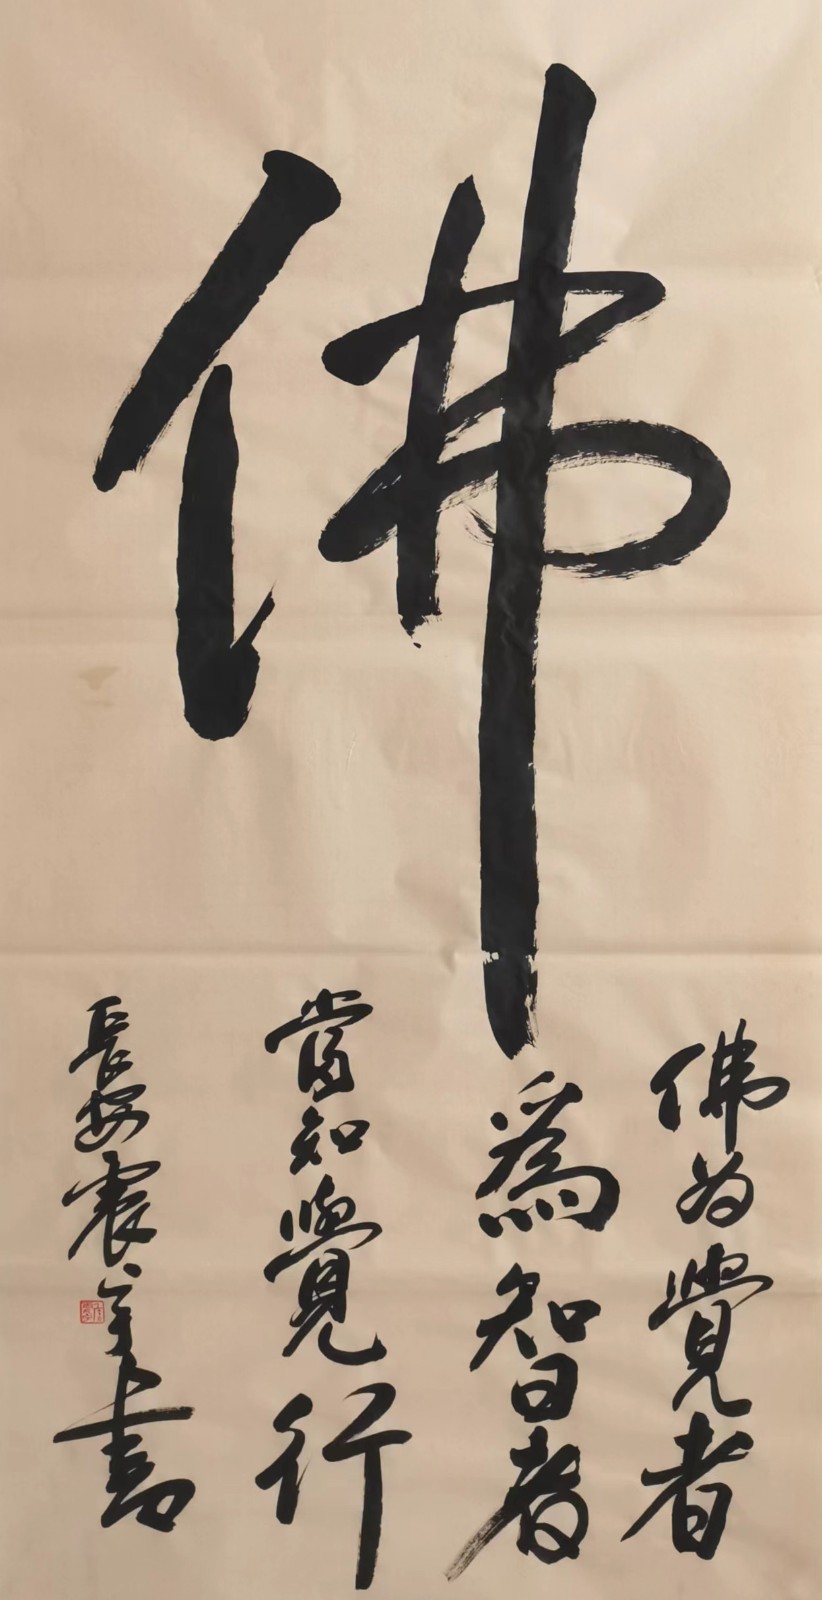 佛
佛为覺者
為智者
當知覺行
長安震
書